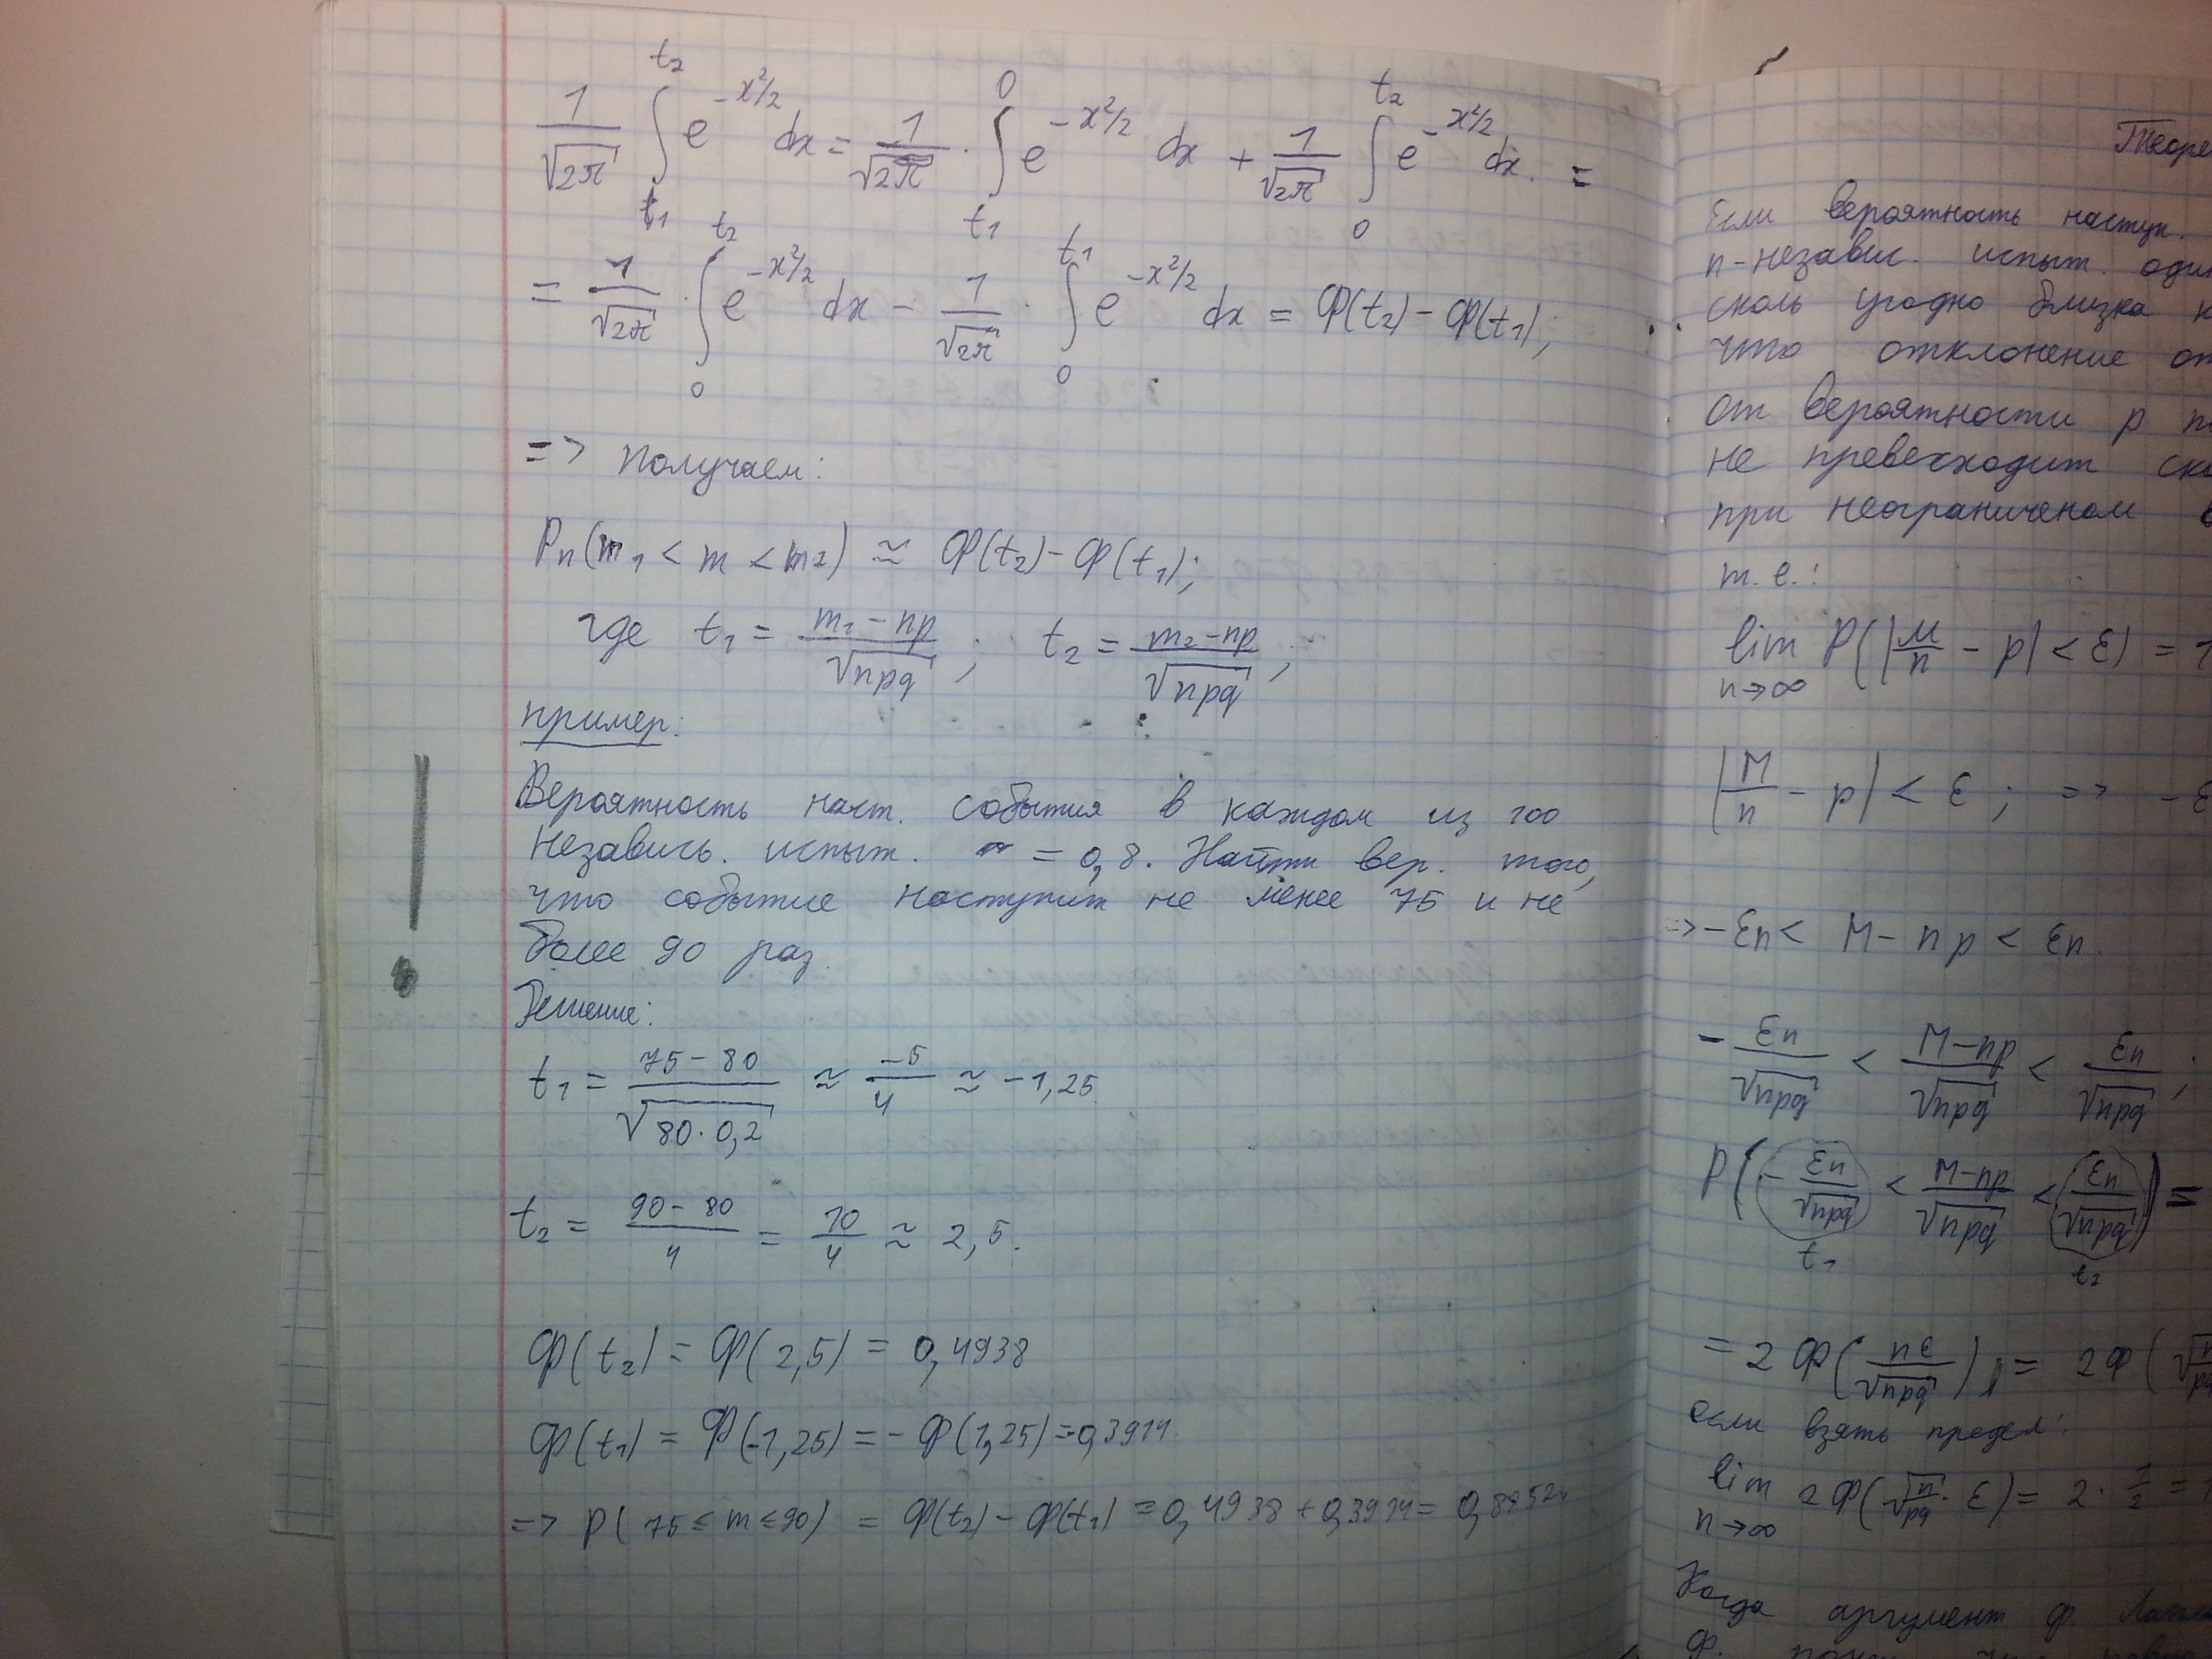 1/√2π ∫_{t₁}^{t₂} e^{-x²/2} dx = 1/√2π · ∫_{t₁}^{0} e^{-x²/2} dx + 1/√2π ∫_{0}^{t₂} e^{-x²/2} dx. =
= 1/√2π · ∫_{0}^{t₂} e^{-x²/2} dx - 1/√2π · ∫_{0}^{t₁} e^{-x²/2} dx = Φ(t₂) - Φ(t₁);
=> получаем:
Pₙ(m₁ < m < m₂) ≈ Φ(t₂) - Φ(t₁);
где t₁ = (m₁ - np)/√npq ; t₂ = (m₂ - np)/√npq ;
пример:
Вероятность наст. события в каждом из 100
независ. испыт. = 0,8. Найти вер. того,
что событие наступит не менее 75 и не
более 90 раз.
Решение:
t₁ = (75 - 80)/√80·0,2 ≈ -5/4 ≈ -1,25.
t₂ = (90 - 80)/4 = 10/4 ≈ 2,5.
Φ(t₂) = Φ(2,5) = 0,4938
Φ(t₁) = Φ(-1,25) = -Φ(1,25) = -0,3914
=> P(75 ≤ m ≤ 90) = Φ(t₂) - Φ(t₁) = 0,4938 + 0,3914 =
Если вероятность наступ.
n-независ. испыт.
сколь угодно близка
что отклонение
от вероятности p
не превосходит
при неограниченом
т. е.:
lim_{n→∞} P(|M/n - p| < ε) = 1
|M/n - p| < ε ; => -ε
=> -εn < M - np < εn.
- εn/√npq < (M-np)/√npq < εn/√npq ;
P(- εn/√npq < (M-np)/√npq < εn/√npq) =
t₁ t₂
= 2Φ(nε/√npq) = 2Φ(
если взять предел:
lim_{n→∞} 2Φ(√n/pq · ε) = 2 · 1/2 =
Когда аргумент ф.